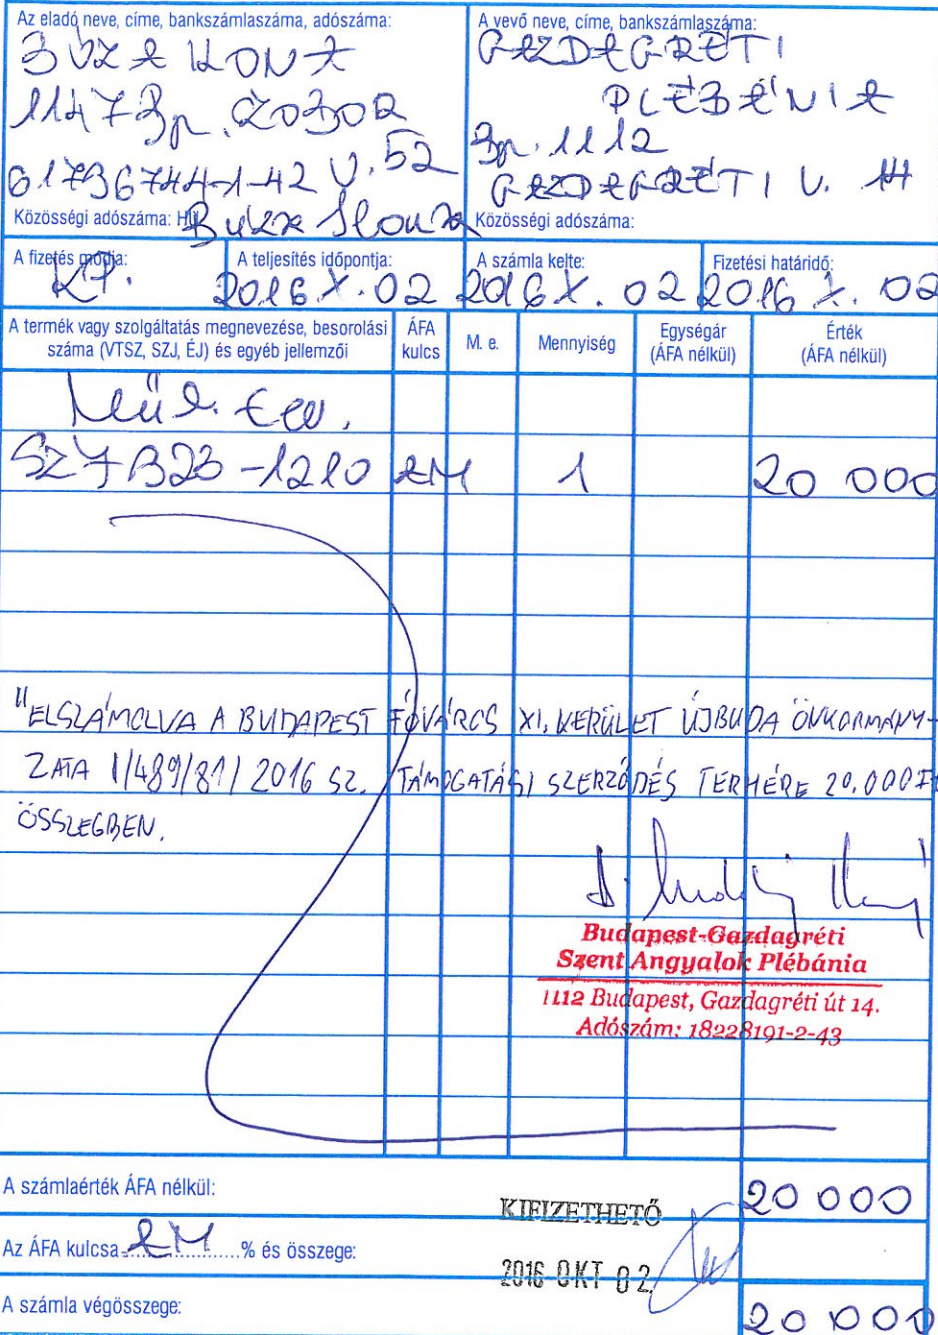 Az eladó neve, címe, bankszámlaszáma, adószáma:
BUZA ILONA
1147 Bp. CZOBOR
U. 52
61736744-1-42
Közösségi adószáma: HU
Buza Ilona
A vevő neve, címe, bankszámlaszáma:
GAZDAGRÉTI
PLÉBÁNIA
Bp. 1112
GAZDAGRÉTI U. 14
Közösségi adószáma:
A fizetés módja:
KP.
A teljesítés időpontja:
2016 X. 02
A számla kelte:
2016 X. 02
Fizetési határidő:
2016 X. 02
A termék vagy szolgáltatás megnevezése, besorolási száma (VTSZ, SZJ, ÉJ) és egyéb jellemzői
ÁFA kulcs
M. e.
Mennyiség
Egységár (ÁFA nélkül)
Érték (ÁFA nélkül)
SZJ 923-1210 AM 1 20 000
"ELSZÁMOLVA A BUDAPEST FŐVÁROS XI. KERÜLET ÚJBUDA ÖNKORMÁNY-
ZATA I/489/81/2016 SZ. TÁMOGATÁSI SZERZŐDÉS TERHÉRE 20.000 Ft
ÖSSZEGBEN.
Budapest-Gazdagréti
Szent Angyalok Plébánia
1112 Budapest, Gazdagréti út 14.
Adószám: 18228191-2-43
A számlaérték ÁFA nélkül: 20 000
KIFIZETHETŐ
Az ÁFA kulcsa AM % és összege:
2016 OKT 02.
A számla végösszege: 20 000